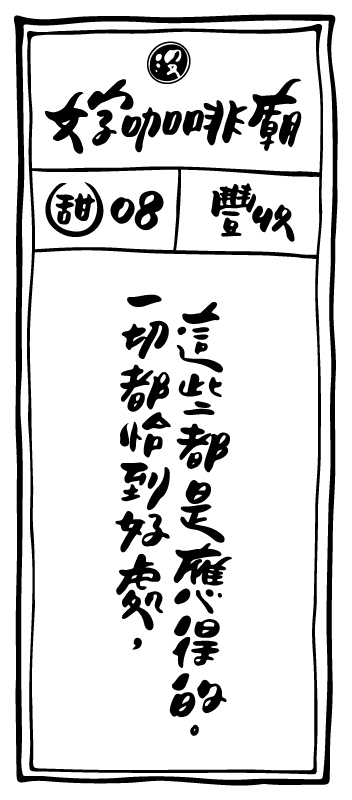 沒
好咖啡廟
甜 08
豐收
一切都恰到好處，
這些都是應得的。